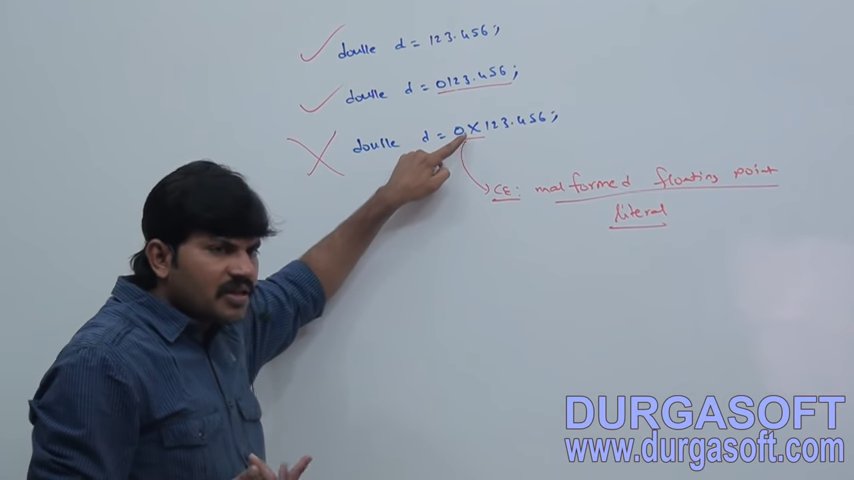 double d = 123.456;
double d = 0123.456;
double d = 0X123.456;
CE: malformed floating point
literal
DURGASOFT
www.durgasoft.com